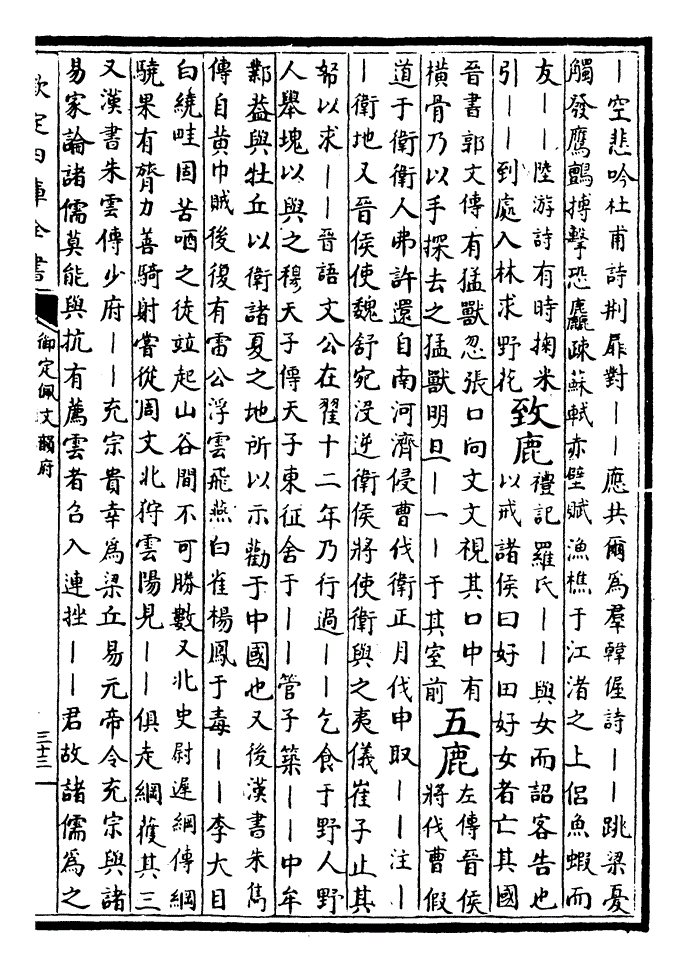 ｜空悲吟杜甫詩荆扉對｜｜應共爾為羣韓偓詩｜｜跳梁憂
觸發鷹鸇搏擊恐麤疎蘇軾赤壁賦漁樵于江渚之上侶魚蝦而
友｜｜陸游詩有時掬米
引｜｜到處入林求野花
致鹿
禮記羅氏｜｜與女而詔客告也
以戒諸侯曰好田好女者亡其國
晉書郭文傳有猛獸忽張口向文文視其口中有
橫骨乃以手探去之猛獸明旦｜一｜于其室前
五鹿
左傳晉侯
將伐曹假
道于衛衛人弗許還自南河濟侵曹伐衛正月伐申取｜｜注｜
｜衛地又晉侯使魏舒宛没逆衛侯將使衛與之夷儀崔子止其
帑以求｜｜晉語文公在翟十二年乃行過｜｜乞食于野人野
人舉塊以與之穆天子傳天子東征舍于｜｜管子築｜｜中牟
鄴葢與牡丘以衛諸夏之地所以示勸于中國也又後漢書朱雋
傳自黄巾賊後復有雷公浮雲飛燕白雀楊鳳于毒｜｜李大目
白繞畦固苦哂之徒竝起山谷間不可勝數又北史尉遲綱傳綱
驍果有膂力善騎射嘗從周文北狩雲陽見｜｜俱走綱獲其三
又漢書朱雲傳少府｜｜充宗貴幸為梁丘易元帝令充宗與諸
易家論諸儒莫能與抗有薦雲者召入連拄｜｜君故諸儒為之
欽定四庫全書
御定佩文韻府
三十三